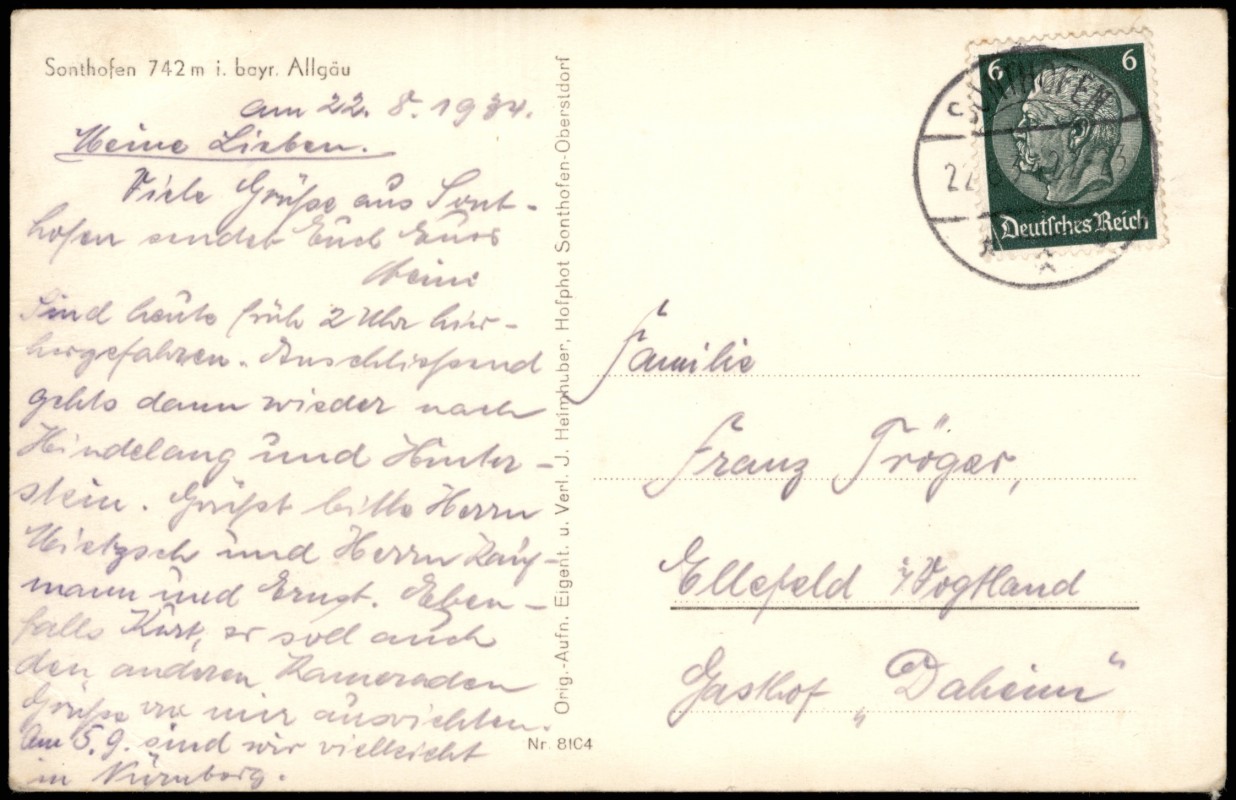 Sonthofen 742 m i. bayr. Allgäu
am 22. 8. 1934.
Meine Lieben.
Viele Grüße aus Sont-
hofen sendet Euch Euer
Heini
Sind heute früh 2 Uhr hier-
hergefahren. Anschließend
gehts dann wieder nach
Hindelang und Hinter-
stein. Grüßt bitte Herrn
Mietzsch und Herrn Kauf-
mann und Ernst. Eben-
falls Kurt, er soll auch
den anderen Kameraden
Grüße von mir ausrichten.
Am 5.9. sind wir vielleicht
in Nürnberg.
Orig.-Aufn. Eigent. u. Verl. J. Heimhuber, Hofphot Sonthofen-Oberstdorf
Nr. 8104
6 6
Deutsches Reich
SONTHOFEN
22
Familie
Franz Tröger,
Ellefeld i/Vogtland
Gasthof „Daheim“